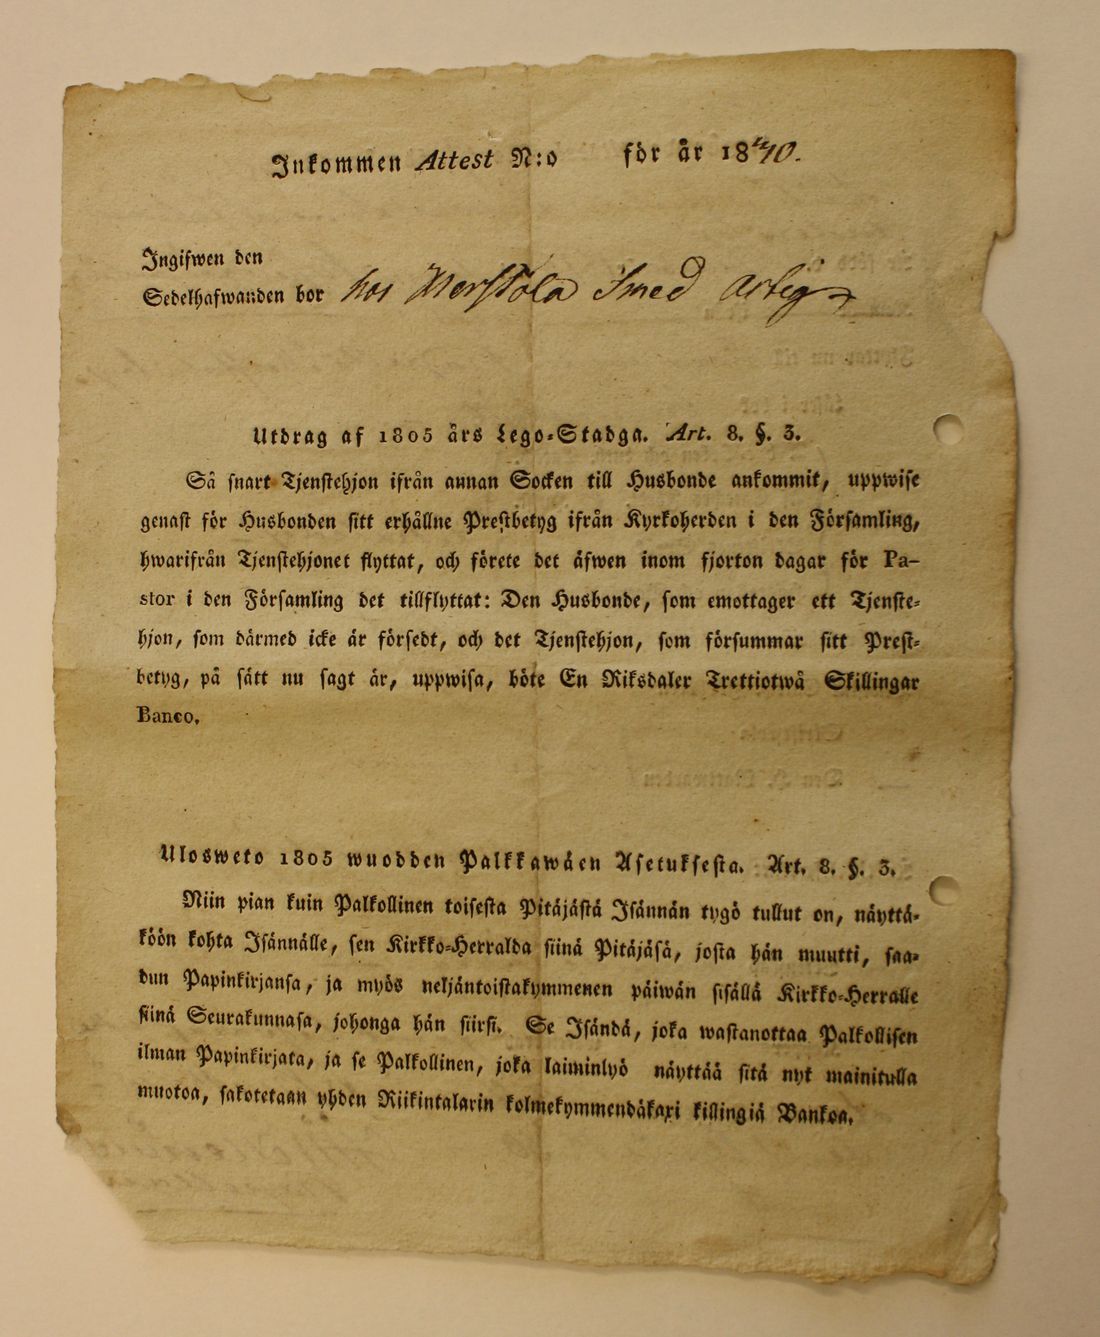 Inkommen Attest N:o för år 1840.
Ingifwen den
Sedelhafwanden bor hos Smed
Utdrag af 1805 års Lego-Stadga. Art. 8. §. 3.
Så snart Tjenstehjon ifrån annan Socken till Husbonde ankommit, uppwise
genast för Husbonden sitt erhållne Prestbetyg ifrån Kyrkoherden i den Församling,
hwarifrån Tjenstehjonet flyttat, och förete det äfwen inom fjorton dagar för Pa-
stor i den Församling det tillflyttat: Den Husbonde, som emottager ett Tjenste-
hjon, som därmed icke är försedt, och det Tjenstehjon, som försummar sitt Prest-
betyg, på sätt nu sagt är, uppwisa, böte En Riksdaler Trettiotwå Skillingar
Banco.
Ulosweto 1805 wuodden Palkkawäen Asetuksesta. Art. 8. §. 3.
Niin pian kuin Palkollinen toisesta Pitäjästä Isännän tygö tullut on, näyttä-
köön kohta Isännälle, sen Kirkko-Herralda siinä Pitäjäsä, josta hän muutti, saa-
dun Papinkirjansa, ja myös neljäntoistakymmenen päiwän sisällä Kirkko-Herralle
siinä Seurakunnasa, johonga hän siirsi. Se Isändä, joka wastanottaa Palkollisen
ilman Papinkirjata, ja se Palkollinen, joka laiminlyö näyttää sitä nyt mainitulla
muotoa, sakotetaan yhden Riikintalarin kolmekymmendäkaxi killingiä Bankoa.